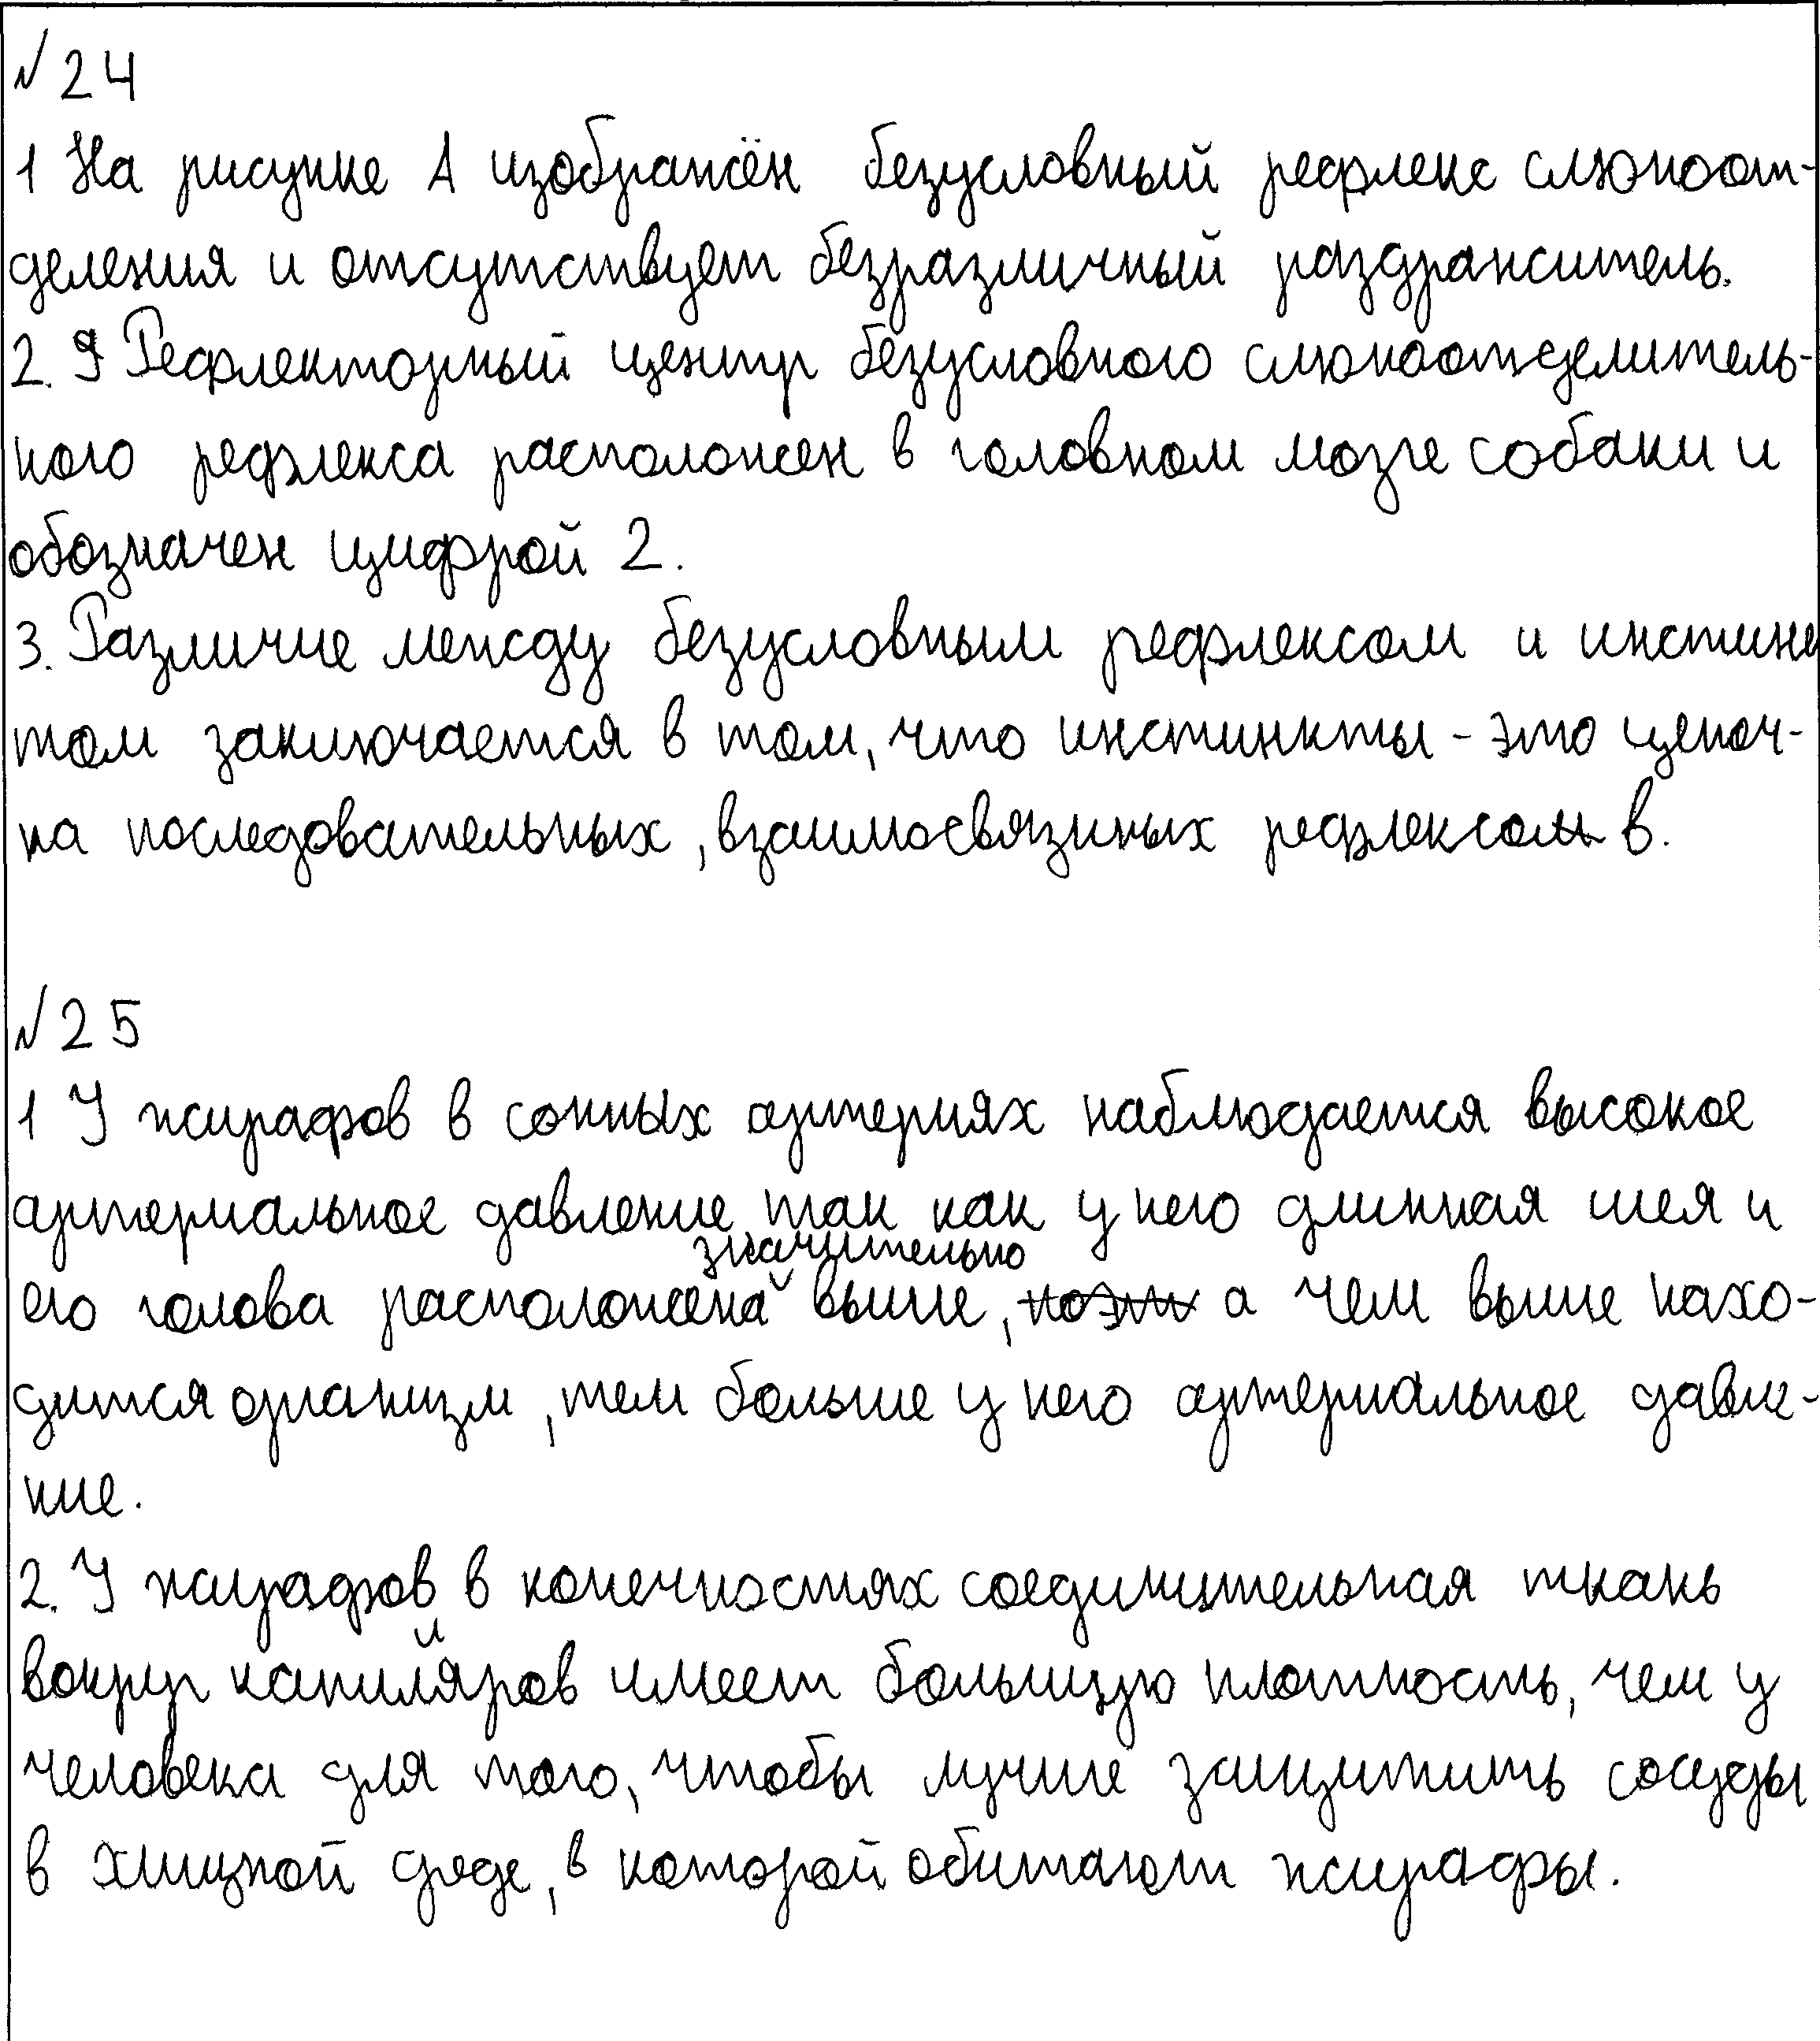 № 24
1 На рисунке А изображён безусловный рефлекс слюноот-
деления и отсутствует безразличный раздражитель.
2. Рефлекторный центр безусловного слюноотделитель-
ного рефлекса расположен в головном мозге собаки и
обозначен цифрой 2.
3. Различие между безусловным рефлексом и инстинк
том заключается в том, что инстинкты - это цепоч-
ка последовательных, взаимосвязиных рефлексов.
№ 25
1 У жирафов в сонных артериях наблюдается высокое
артериальное давление, так как у него длинная шея и
его голова расположена значительно выше, а чем выше нахо-
дится организм, тем больше у него артериальное давле-
ние.
2. У жирафов в конечностях соединительная ткань
вокруг капиляров имеет большую плотность, чем у
человека для того, чтобы лучше защитить сосуды
в хищной среде, в которой обитают жирафы.